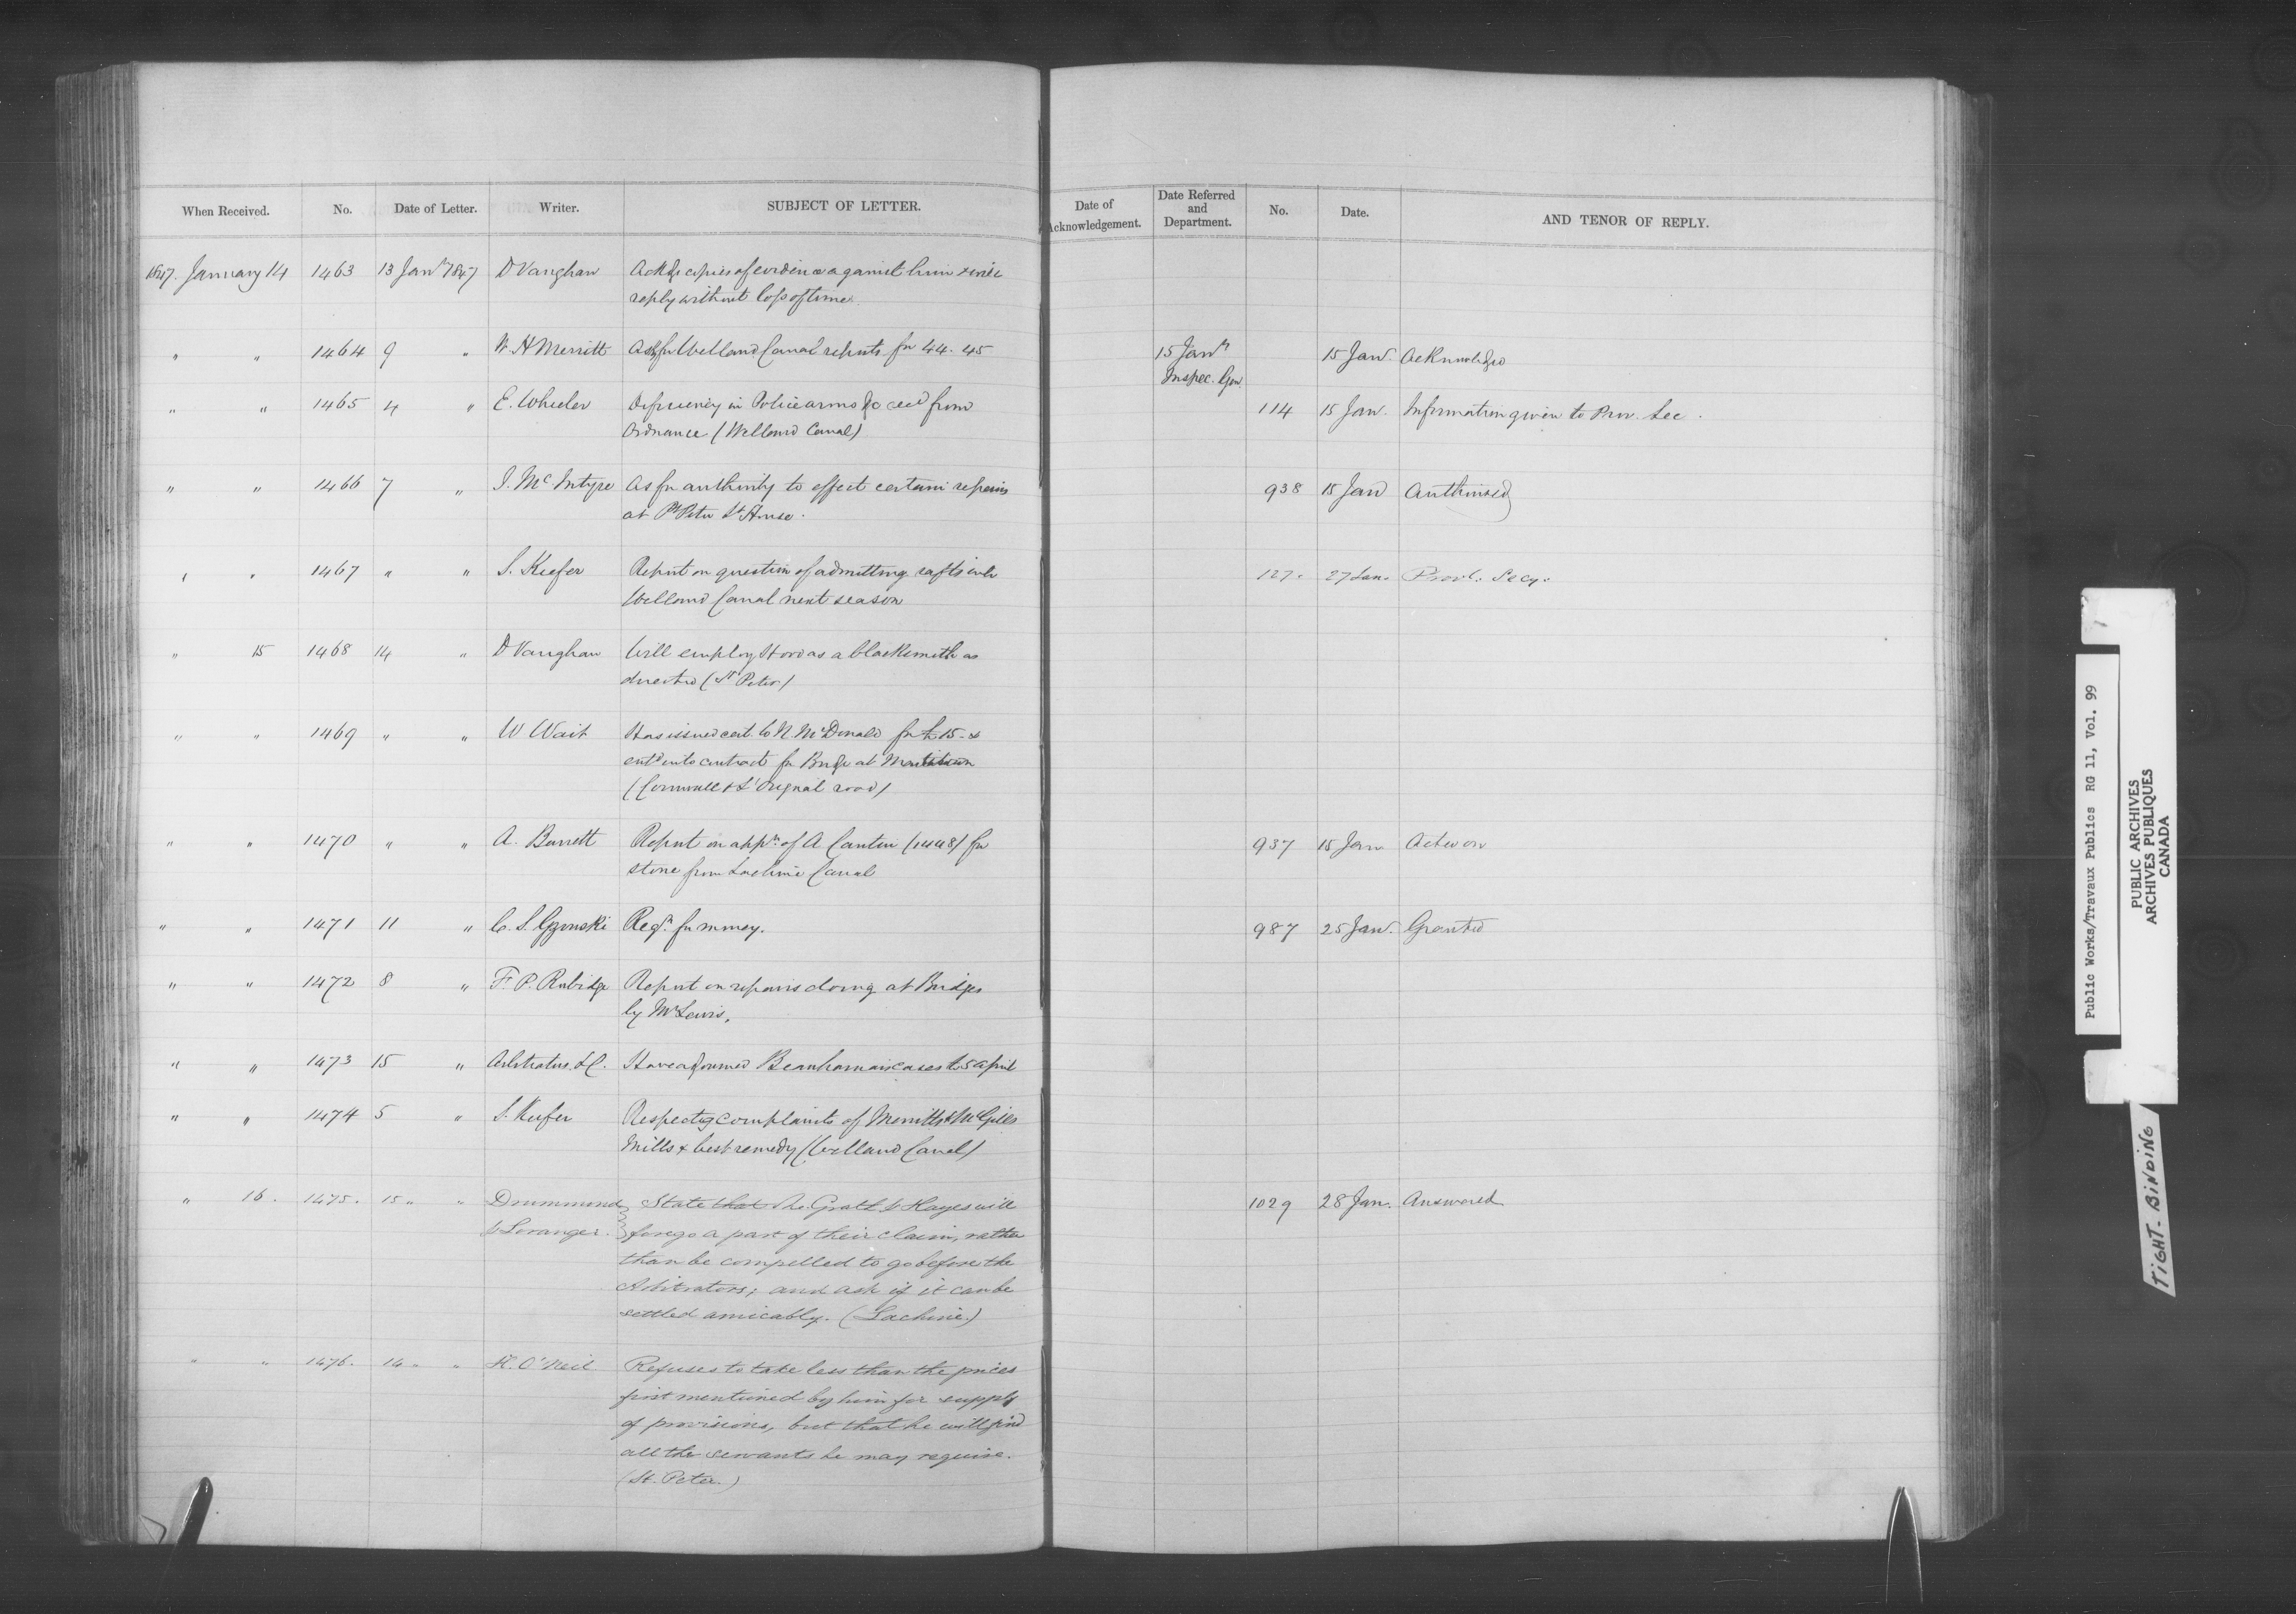 When Received. No. Date of Letter. Writer. SUBJECT OF LETTER. Date of Acknowledgement. Date Referred and Department. No. Date. AND TENOR OF REPLY.
1847. January 14 1463 13 Jany 1847 D Vaughan Ackgs copies of evidence against him & will
reply without loss of time.
" " 1464 9 " W. H Merritt Ask for Welland Canal reports for 44. 45 15 Jany 15 Jany. Acknowledged
Inspec. Gen.
" " 1465 4 " E. Wheeler Deficiency in Police arms &c recd from 114 15 Jany. Information given to Prov. Sec.
Ordnance (Welland Canal)
" " 1466 7 " J. McIntyre As for authority to effect certain repairs 938 15 Jany Authorised
at Pt Peter Lt House.
" " 1467 " " S. Keefer Report on question of admitting rafts into 127. 27 Jan. Provl. Secy.
Welland Canal next season
" 15 1468 14 " D Vaughan Will employ as a blacksmith as
directed (St Peter)
" " 1469 " " W Wait Has issued cert to N. McDonald for £15. &
entd into contract for Bridge at
(Cornwall & L'Orignal road)
" " 1470 " " A. Barrett Report on appn of A Cantin (1448) for 937 15 Jany Acted on
stone from Lachine Canal
" " 1471 11 " C. S. Gzowski Reqn for money. 987 25 Jany. Granted
" " 1472 8 " F. P. Rubidge Report on repairs doing at Bridges
by Mr Lewis.
" " 1473 15 " Arbitrators L.C. Have adjourned Beauharnais cases to 5 April
" " 1474 5 " S. Keefer Respectg complaints of Merritts & McGills
Mills & best remedy (Welland Canal)
" 16. 1475. 15 " " Drummond State that McGrath & Hayes will 1029 28 Jan. Answered
& Loranger. forego a part of their claim, rather
than be compelled to go before the
Arbitrators; and ask if it can be
settled amicably. (Lachine.)
" " 1476. 14 " " H. O'Neil Refuses to take less than the prices
first mentioned by him for supply
of provisions, but that he will find
all the servants he may require.
(St. Peter.)
Public Works/Travaux Publics RG 11, Vol. 99
PUBLIC ARCHIVES
ARCHIVES PUBLIQUES
CANADA
TIGHT-BINDING